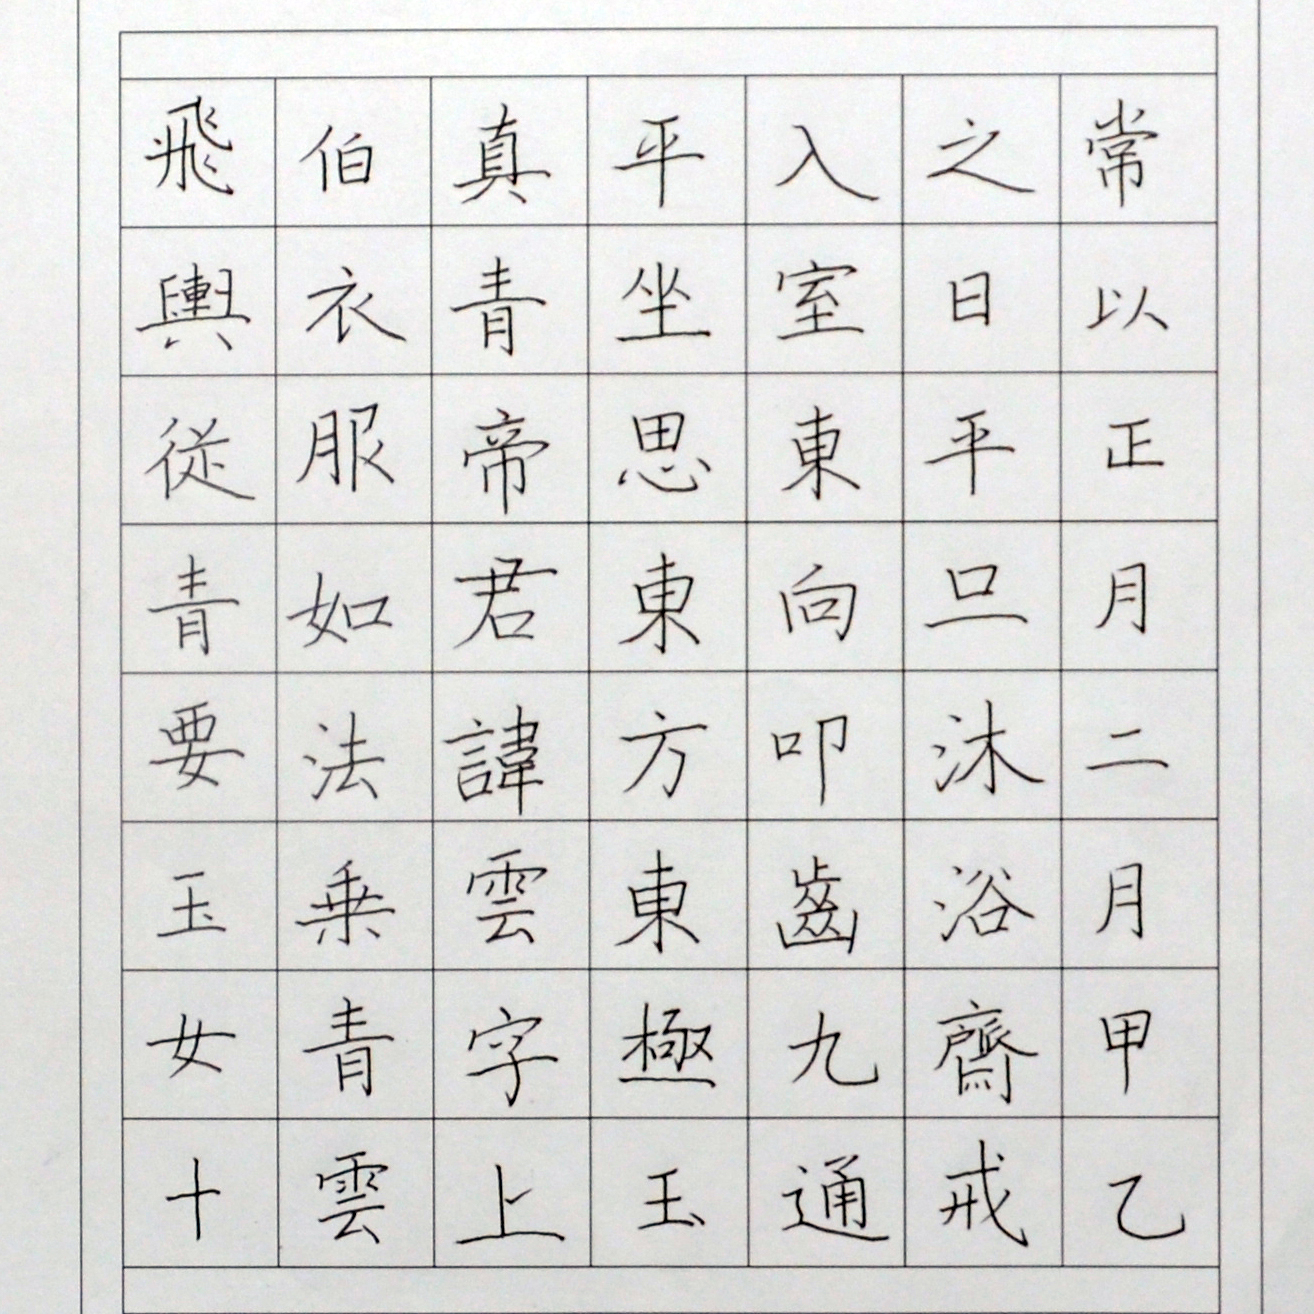 常以正月二月甲乙
之日平旦沐浴齋戒
入室東向叩齒九通
平坐思東方東極玉
真青帝君諱雲字上
伯衣服如法乗青雲
飛輿從青要玉女十